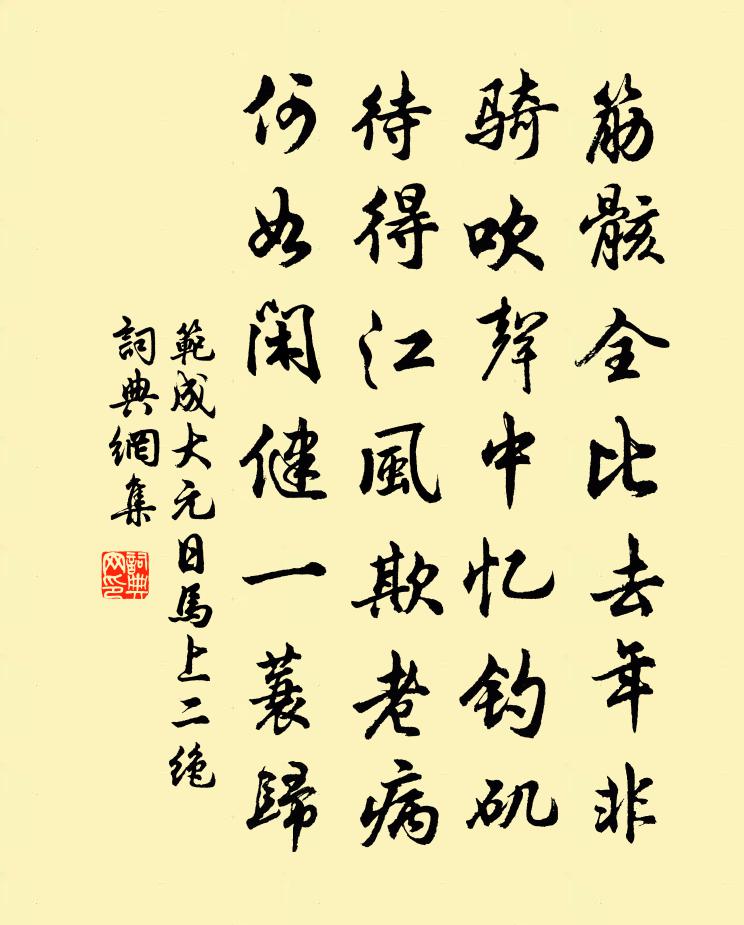 筋骸全比去年非
骑吹聲中忆钓矶
待得江風欺老病
何如闲健一蓑歸
範成大元日馬上二绝
詞典網集
詞典网印